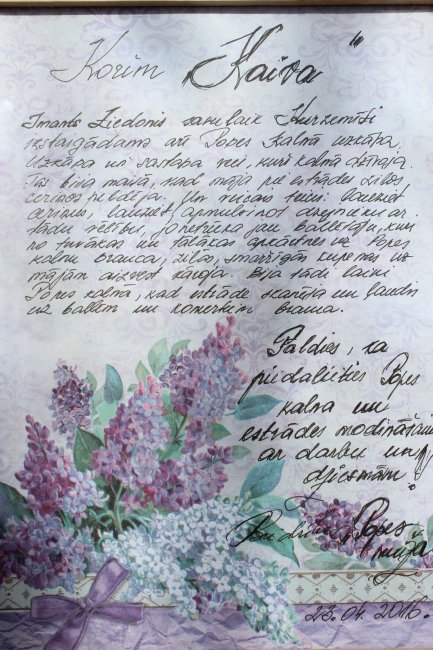 Korim "Kaiva"
Imants Ziedonis savulaik Kurzemīti
izstaigādams arī Popes kalnā uzkāpa.
Uzkāpa un sastapa veci, kurš kalnā dzīvoja.
Tas bija maijā, kad mājā pie estrādes zilos
ceriņos
un vecais teica: lauziet
ceriņus, lauziet
tādu vēlību, jo netrūka jau balletāju, kuri
no tuvākas un tālākas apkārtnes uz Popes
kalnu brauca, zilas, smaržīgas kupenas uz
mājām aizvest kāroja. Bija tādi laiki
Popes kalnā, kad estrāde skanēja un ļaudis
uz ballēm un koncertiem brauca.
Paldies, ka
piedalieties Popes
kalna un
estrādes modināšanā
ar darbu un
dziesmām!
Biedrība "Popes
muiža"
23.04.2016.